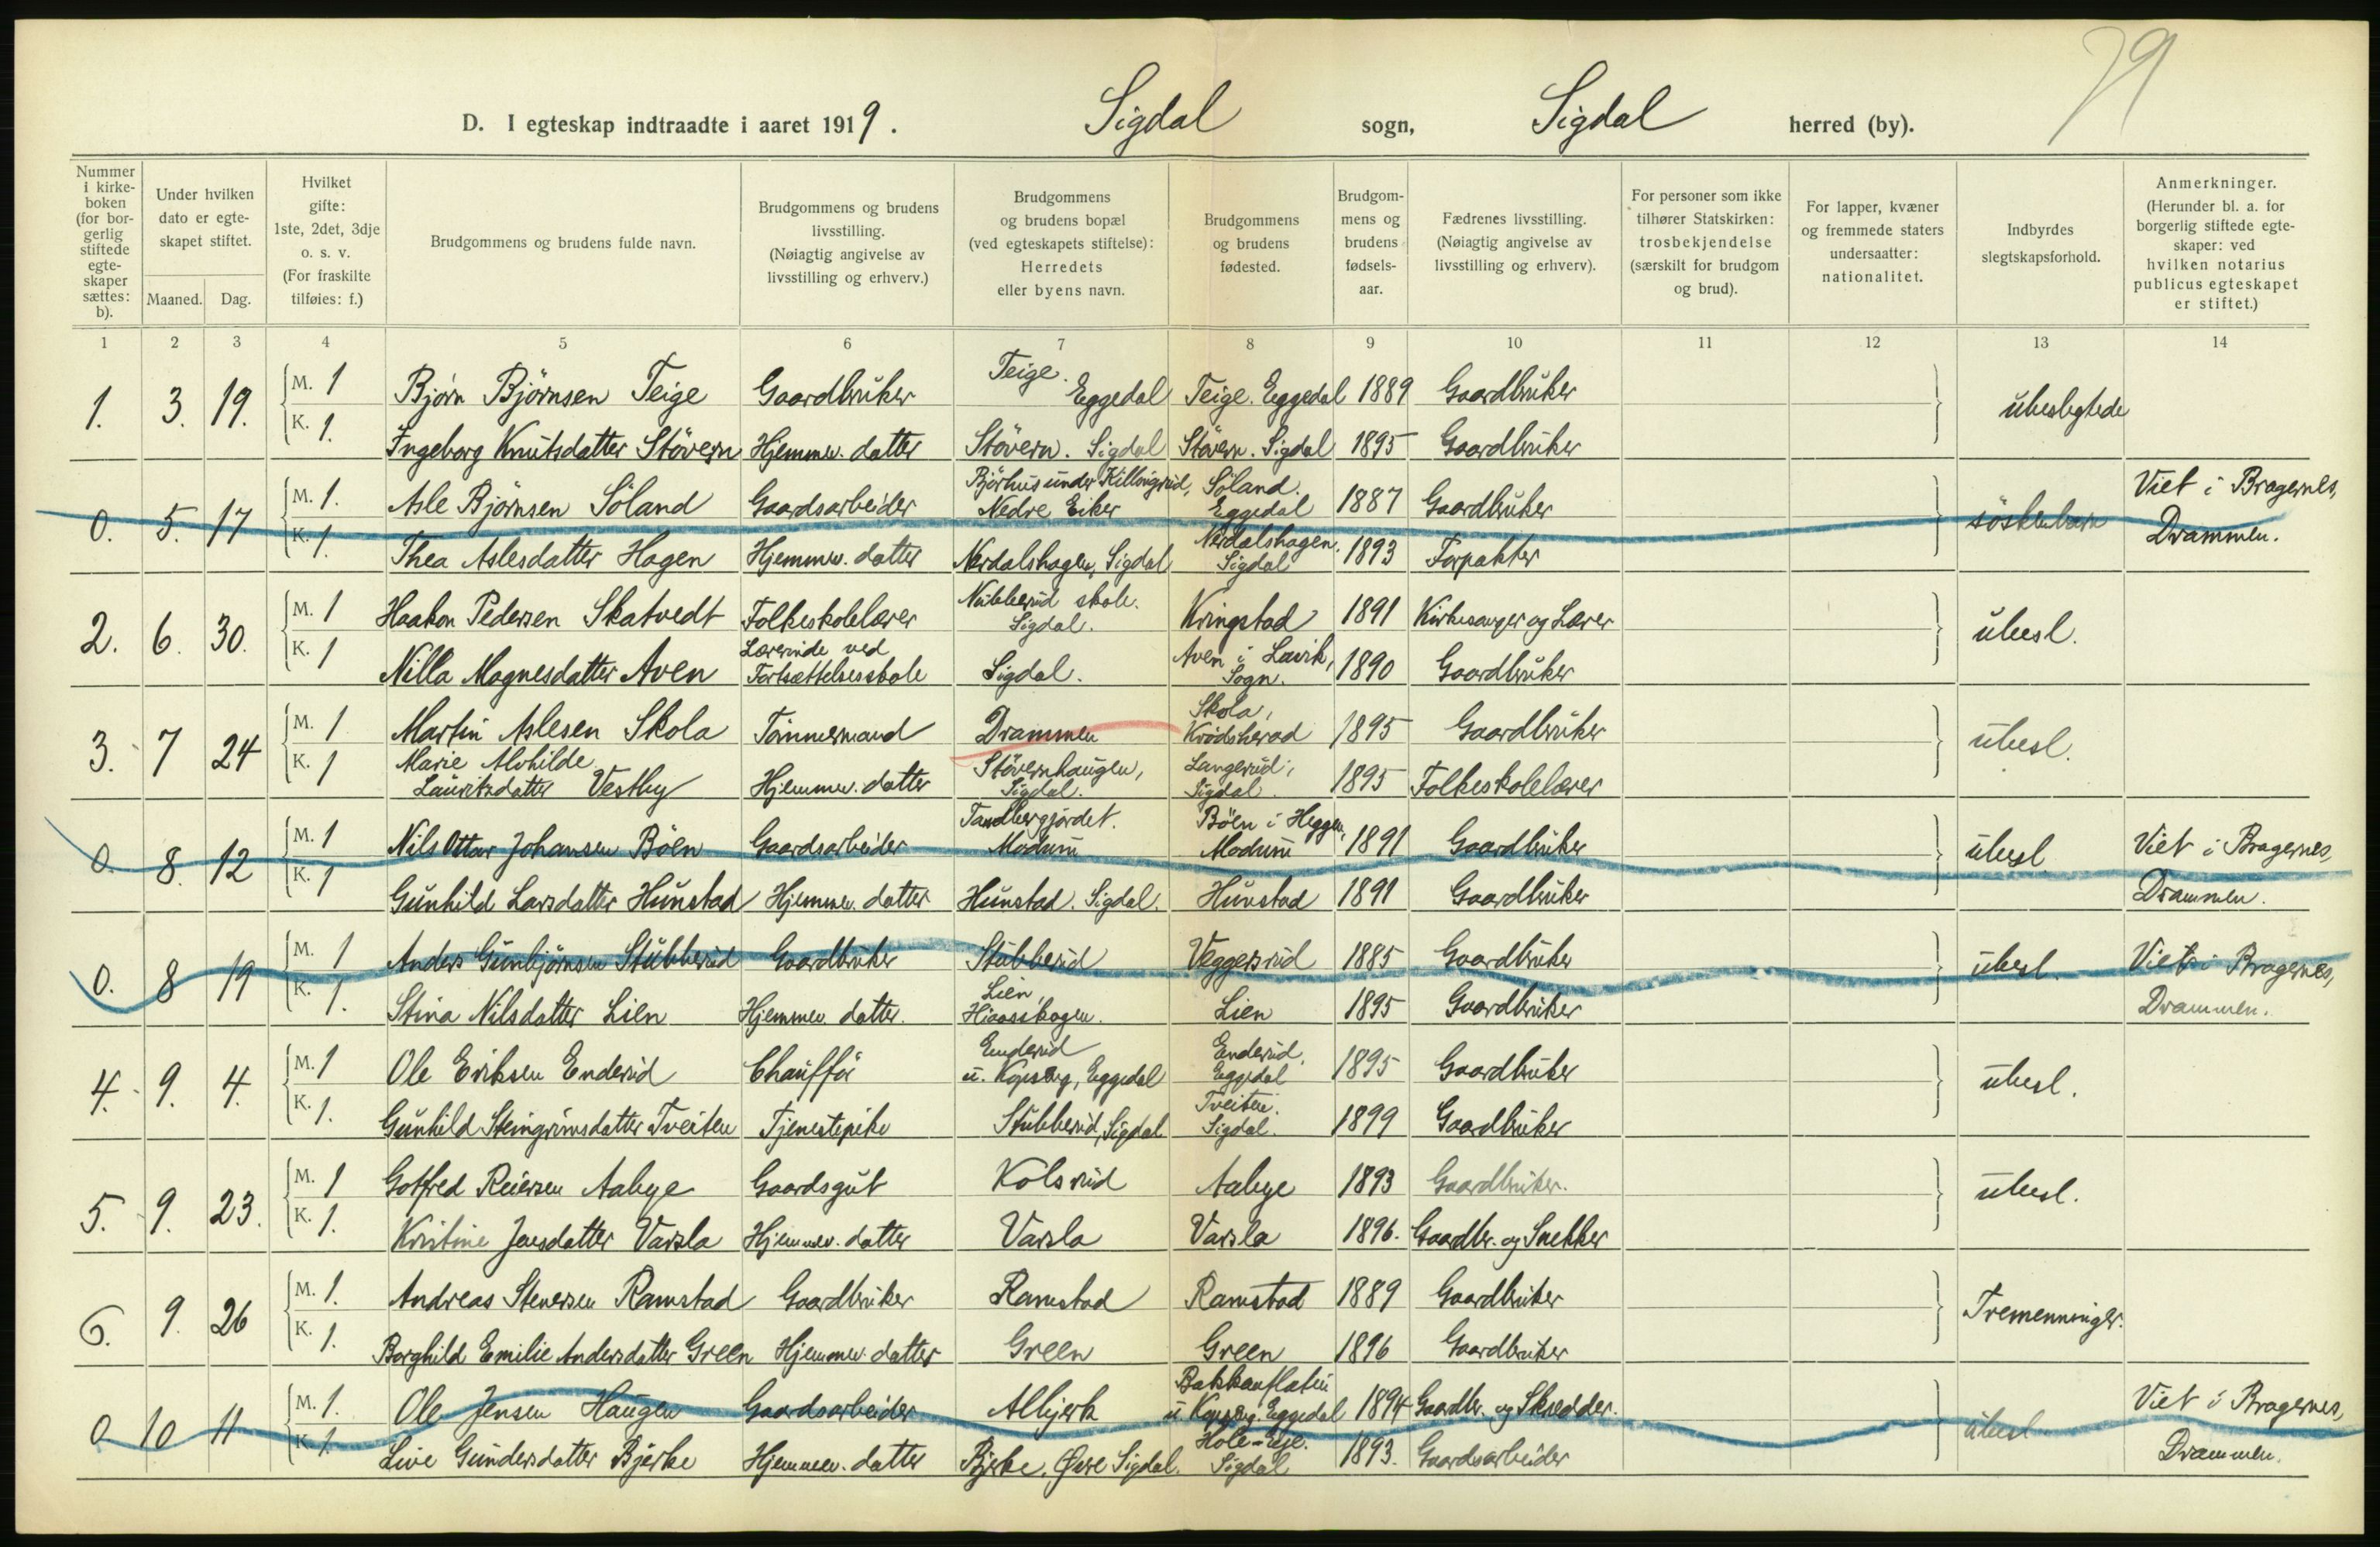 79
D. I egteskap indtraadte i aaret 1919. Sigdal sogn, Sigdal herred (by).
Nummer i kirkeboken (for borgerlig stiftede egteskaper sættes: b).
Under hvilken dato er egteskapet stiftet.
Maaned. Dag.
Hvilket gifte: 1ste, 2det, 3dje o. s. v. (For fraskilte tilføies: f.)
Brudgommens og brudens fulde navn.
Brudgommens og brudens livsstilling. (Nøiagtig angivelse av livsstilling og erhverv.)
Brudgommens og brudens bopæl (ved egteskapets stiftelse): Herredets eller byens navn.
Brudgommens og brudens fødested.
Brudgommens og brudens fødselsaar.
Fædrenes livsstilling. (Nøiagtig angivelse av livsstilling og erhverv).
For personer som ikke tilhører Statskirken: trosbekjendelse (særskilt for brudgom og brud).
For lapper, kvæner og fremmede staters undersaatter: nationalitet.
Indbyrdes slegtskapsforhold.
Anmerkninger. (Herunder bl. a. for borgerlig stiftede egteskaper: ved hvilken notarius publicus egteskapet er stiftet.)
1 2 3 4 5 6 7 8 9 10 11 12 13 14
1. 3. 19. M. 1 Bjørn Björnsen Teige Gaardbruker Teige. Eggedal Teige. Eggedal 1889 Gaardbruker ubeslegtede
K. 1. Ingeborg Knutsdatter Stövern Hjemmev. datter Stövern. Sigdal Stövern. Sigdal 1895 Gaardbruker
0. 5. 17 M. 1. Asle Bjørnsen Söland Gaardsarbeider Björhus under Killingrud, Nedre Eiker Söland. Eggedal 1887 Gaardbruker söskenbarn Viet i Bragernes,
K. 1. Thea Aslesdatter Hagen Hjemmev. datter Nerdalshagen, Sigdal Nerdalshagen. Sigdal 1893 Forpakter Drammen.
2. 6. 30. M. 1 Haakon Pedersen Skatvedt Folkeskolelærer Nubberud skole. Sigdal. Kringstad 1891 Kirkesanger og Lærer ubesl.
K. 1 Nilla Magnesdatter Aven Lærerinde ved Fortsættelsesskole Sigdal. Aven i Lavik, Sogn. 1890 Gaardbruker
3. 7 24 M. 1 Martin Aslesen Skola Tömmermand Drammen Skola, Krødsherad 1895 Gaardbruker ubesl.
K. 1 Marie Alvhilde Lauritsdatter Vestby Hjemmev. datter Stövernhaugen, Sigdal. Langerud, Sigdal. 1895 Folkeskolelærer
0. 8. 12 M. 1 Nils Ottar Johansen Böen Gaardsarbeider Tandbergjordet. Modum Böen i Heggen, Modum 1891 Gaardbruker ubesl. Viet i Bragernes,
K. 1 Gunhild Larsdatter Hunstad Hjemmev. datter Hunstad. Sigdal. Hunstad 1891 Gaardbruker Drammen.
0. 8 19 M. 1 Anders Gunbjörnsen Stubberud Gaardbruker Stubberud Veggersrud 1885 Gaardbruker ubesl. Viet i Bragernes,
K. 1. Stina Nilsdatter Lien Hjemmev. datter. Lien, Hiaasskogen. Lien 1895 Gaardbruker Drammen.
4. 9. 4. M. 1 Ole Eriksen Enderud Chaufför Enderud u. Kopseng, Eggedal Enderud, Eggedal 1895 Gaardbruker ubesl.
K. 1. Gunhild Steingrimsdatter Tveiten Tjenestepike Stubberud, Sigdal Tveiten. Sigdal. 1899 Gaardbruker
5. 9. 23. M. 1 Gotfred Reiersen Aabye Gaardsgut Kolsrud Aabye 1893 Gaardbruker. ubesl.
K. 1. Kristine Jensdatter Varsla Hjemmev. datter Varsla Varsla 1896. Gaardbr. og Snekker
6. 9. 26 M. 1. Andreas Stenersen Ramstad Gaardbruker Ramstad Ramstad 1889 Gaardbruker Tremenninger.
K. 1. Borghild Emilie Andersdatter Green Hjemmev. datter Green Green 1896 Gaardbruker
0 10 11 M. 1. Ole Jensen Haugen Gaardsarbeider Albjerk Bakkanflaten u. Kopseng. Eggedal 1894 Gaardbr. og Skredder. ubesl. Viet i Bragernes,
K. 1. Live Gundersdatter Bjerke Hjemmev. datter Bjerke. Øvre Sigdal. Hole-Eje. Sigdal 1893. Gaardsarbeider Drammen.